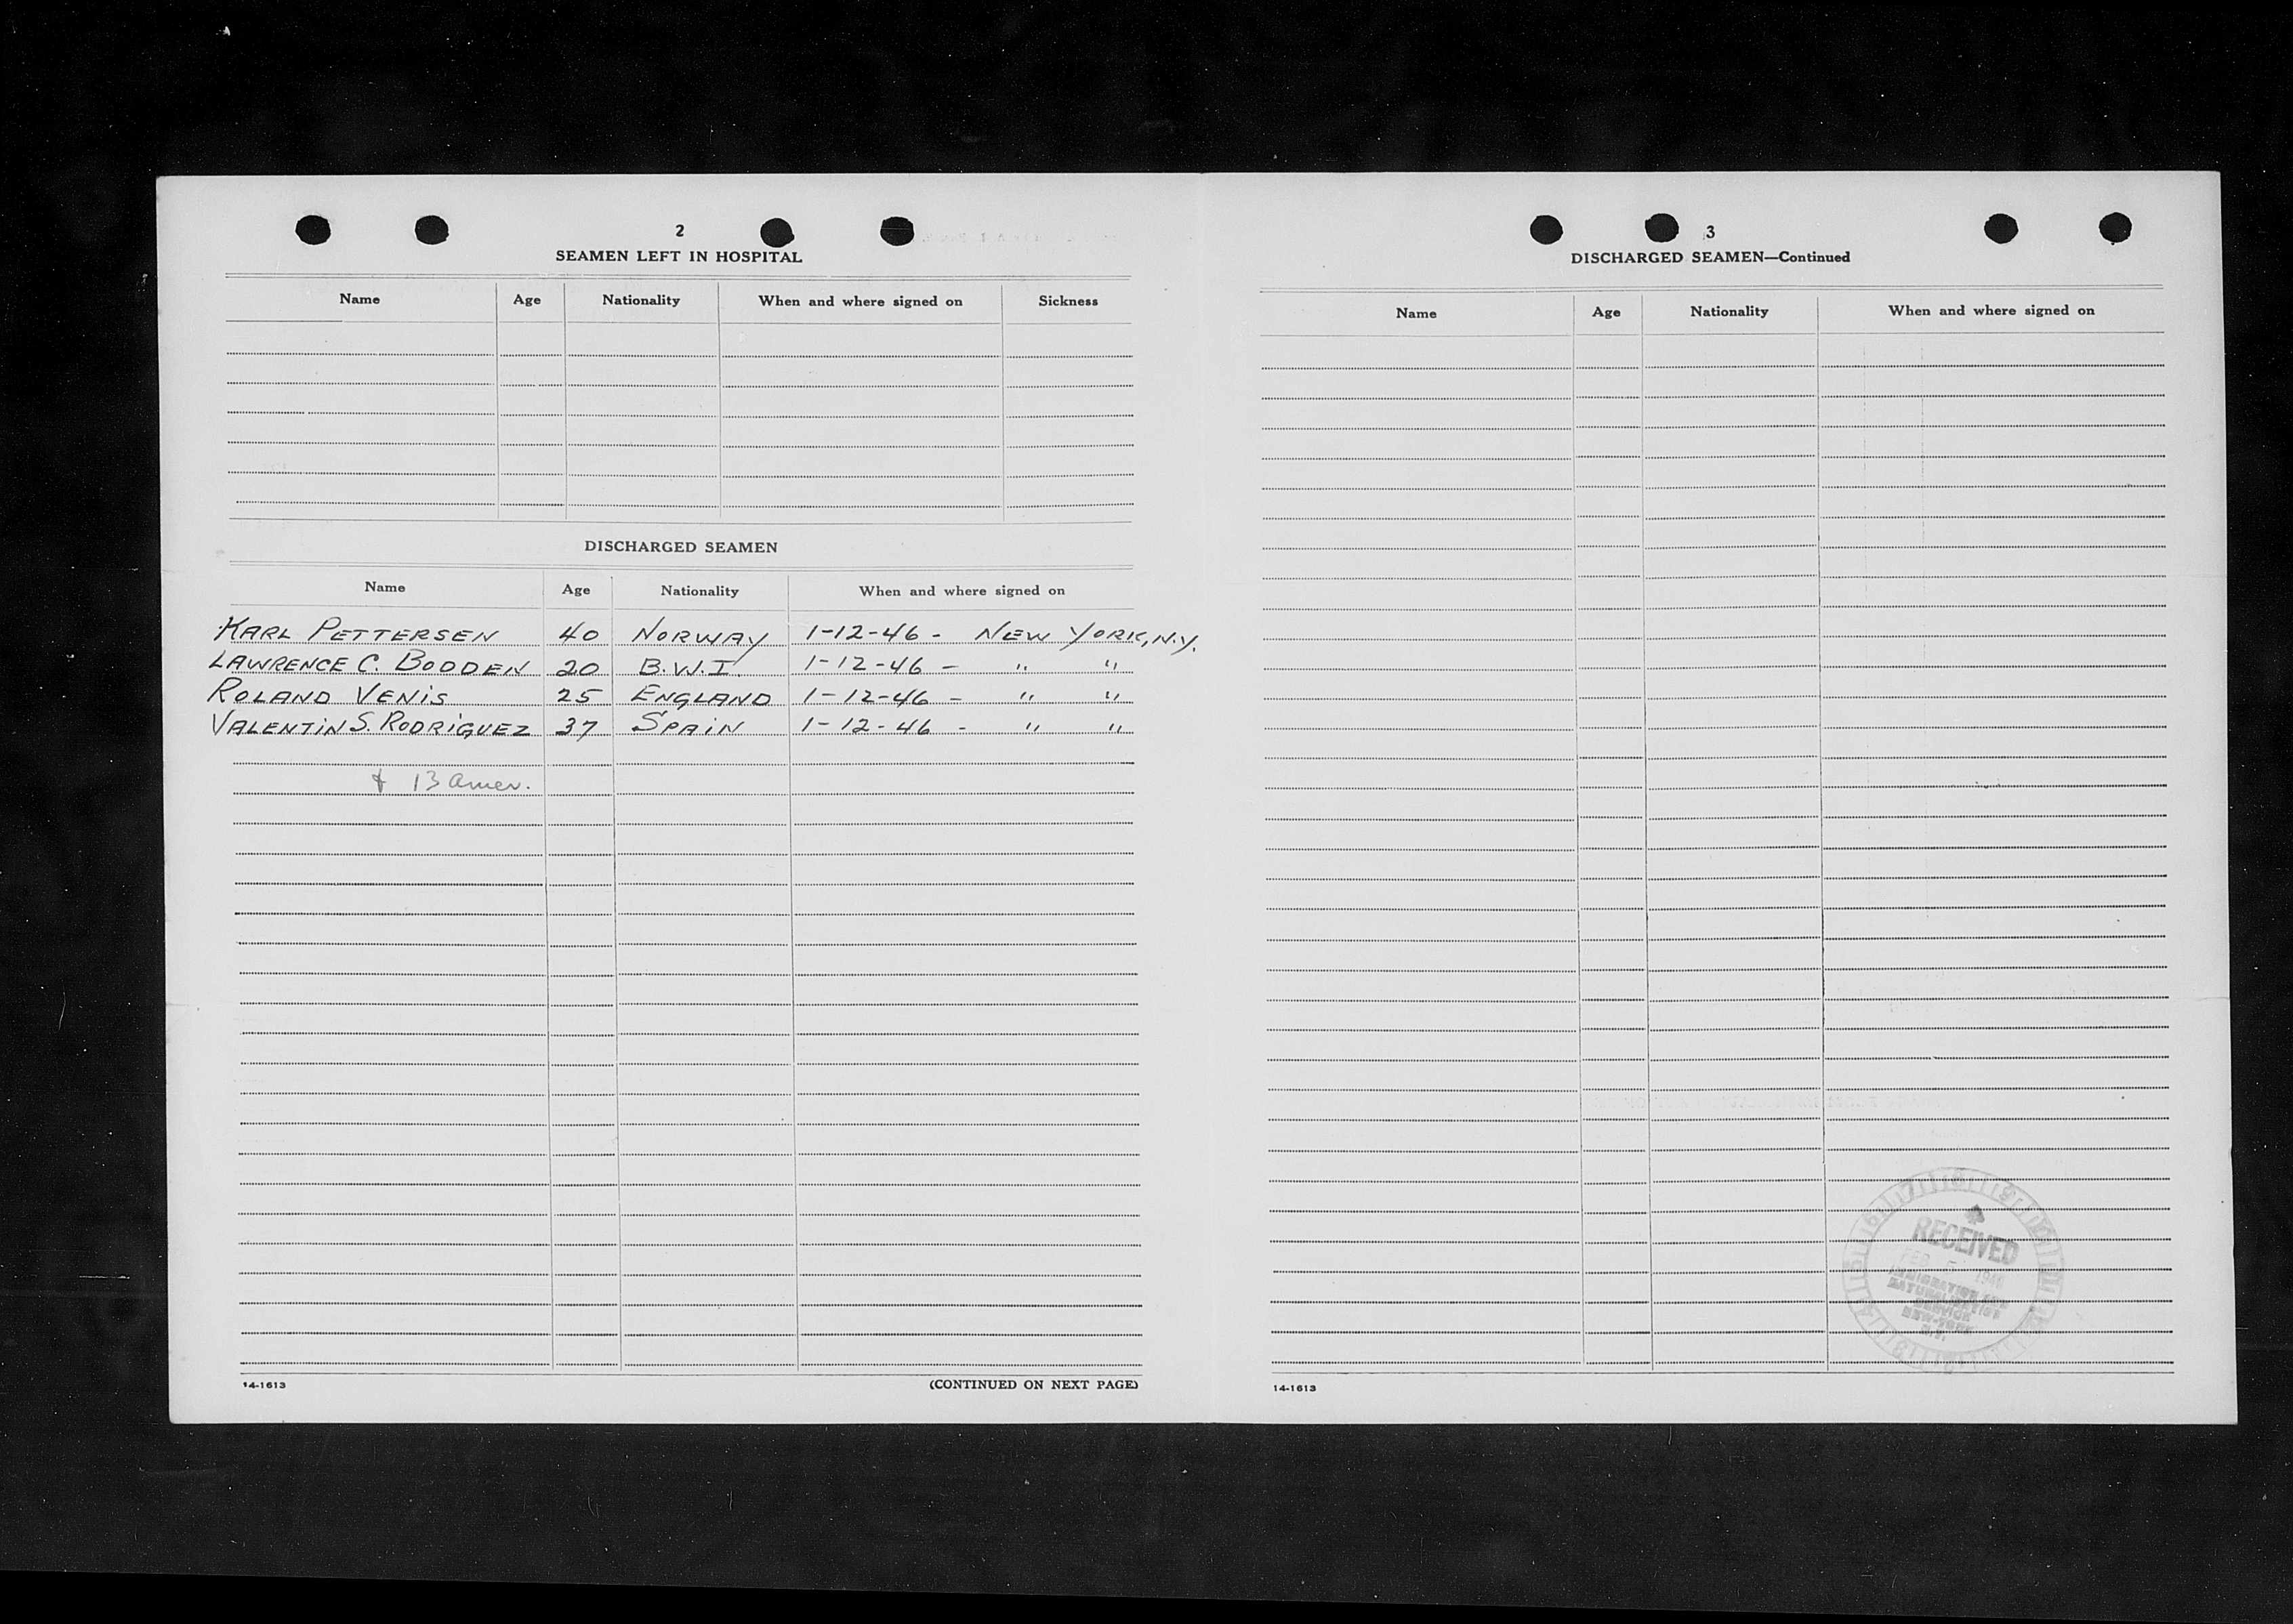 2
SEAMEN LEFT IN HOSPITAL
Name Age Nationality When and where signed on Sickness
DISCHARGED SEAMEN
Name Age Nationality When and where signed on
KARL PETTERSEN 40 NORWAY 1-12-46 - NEW YORK, N.Y.
LAWRENCE C. BODDEN 20 B.W.I. 1-12-46 - " "
ROLAND VENIS 25 ENGLAND 1-12-46 - " "
VALENTIN S. RODRIGUEZ 37 SPAIN 1-12-46 - " "
& 13 Amer.
14-1613 (CONTINUED ON NEXT PAGE)
3
DISCHARGED SEAMEN—Continued
Name Age Nationality When and where signed on
RECEIVED
FEB 1946
IMMIGRATION AND
NATURALIZATION
SERVICE
NEW YORK
N.Y.
14-1613